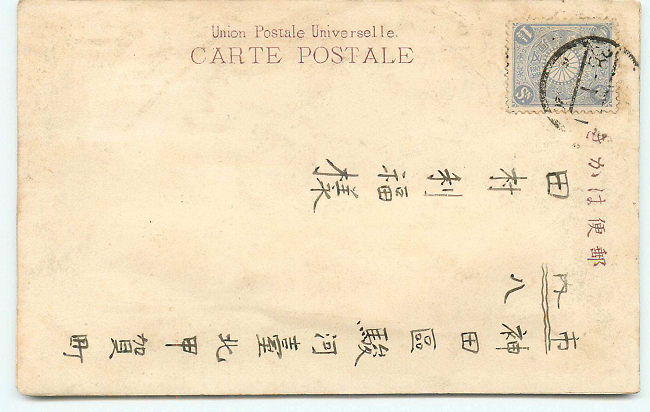 Union Postale Universelle.
CARTE POSTALE
郵便はかき
市内
神田區駿河臺北甲賀町
八
田村利福様